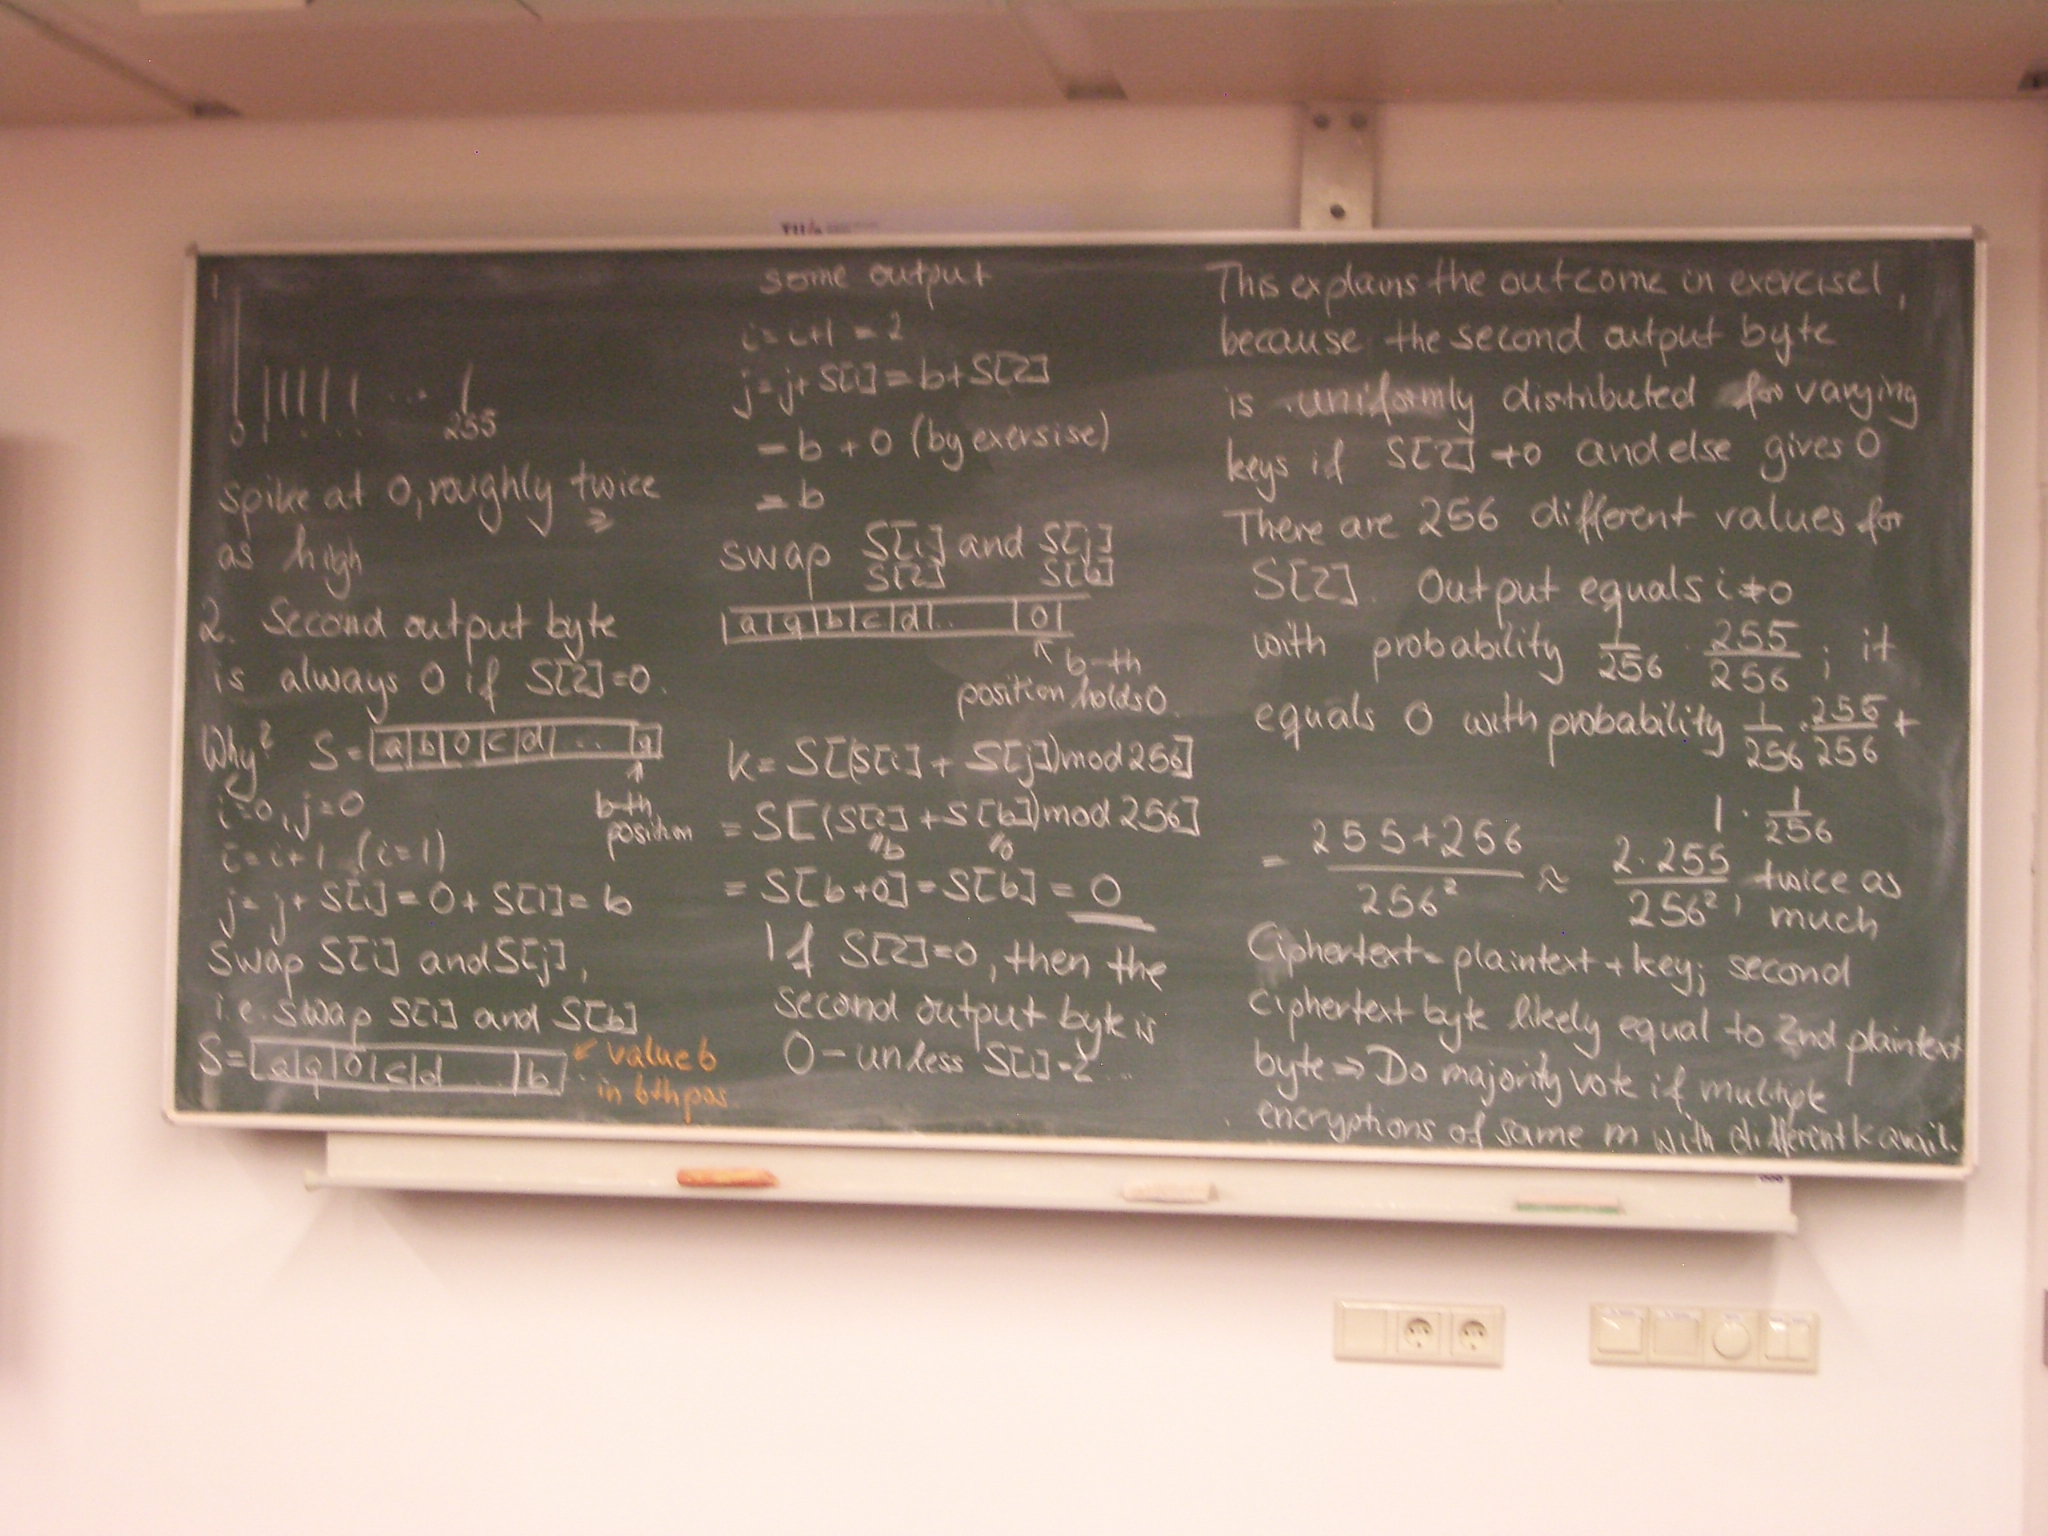 TU/e
1
0 1 . . . . 255
spike at 0, roughly twice
as high
2. Second output byte
is always 0 if S[2]=0.
Why? S= a b 0 c d ... q
b-th
position
i=0, j=0
i=i+1 (i=1)
j=j+S[i]=0+S[1]=b
Swap S[i] and S[j],
i.e. swap S[1] and S[b]
S= a q 0 c d ... b
value b
in bth pos
some output
i=i+1=2
j=j+S[i]=b+S[2]
=b+0 (by exersise)
=b
swap S[i] and S[j]
S[2] S[b]
a q b c d .. 0
b-th
position holds 0.
k=S[(S[i]+S[j])mod 256]
=S[(S[2]+S[b])mod 256]
"b "0
=S[b+0]=S[b]=0
If S[2]=0, then the
second output byte is
0 - unless S[1]=2...
This explains the outcome in exercise1,
because the second output byte
is uniformly distributed for varying
keys if S[2]≠0 and else gives 0
There are 256 different values for
S[2]. Output equals i≠0
with probability 1/256 · 255/256 ; it
equals 0 with probability 1/256 · 255/256 +
1 · 1/256
= (255+256)/256² ≈ (2·255)/256², twice as
much
Ciphertext= plaintext + key; second
Ciphertext byte likely equal to 2nd plaintext
byte => Do majority vote if multiple
encryptions of same m with different k avail.